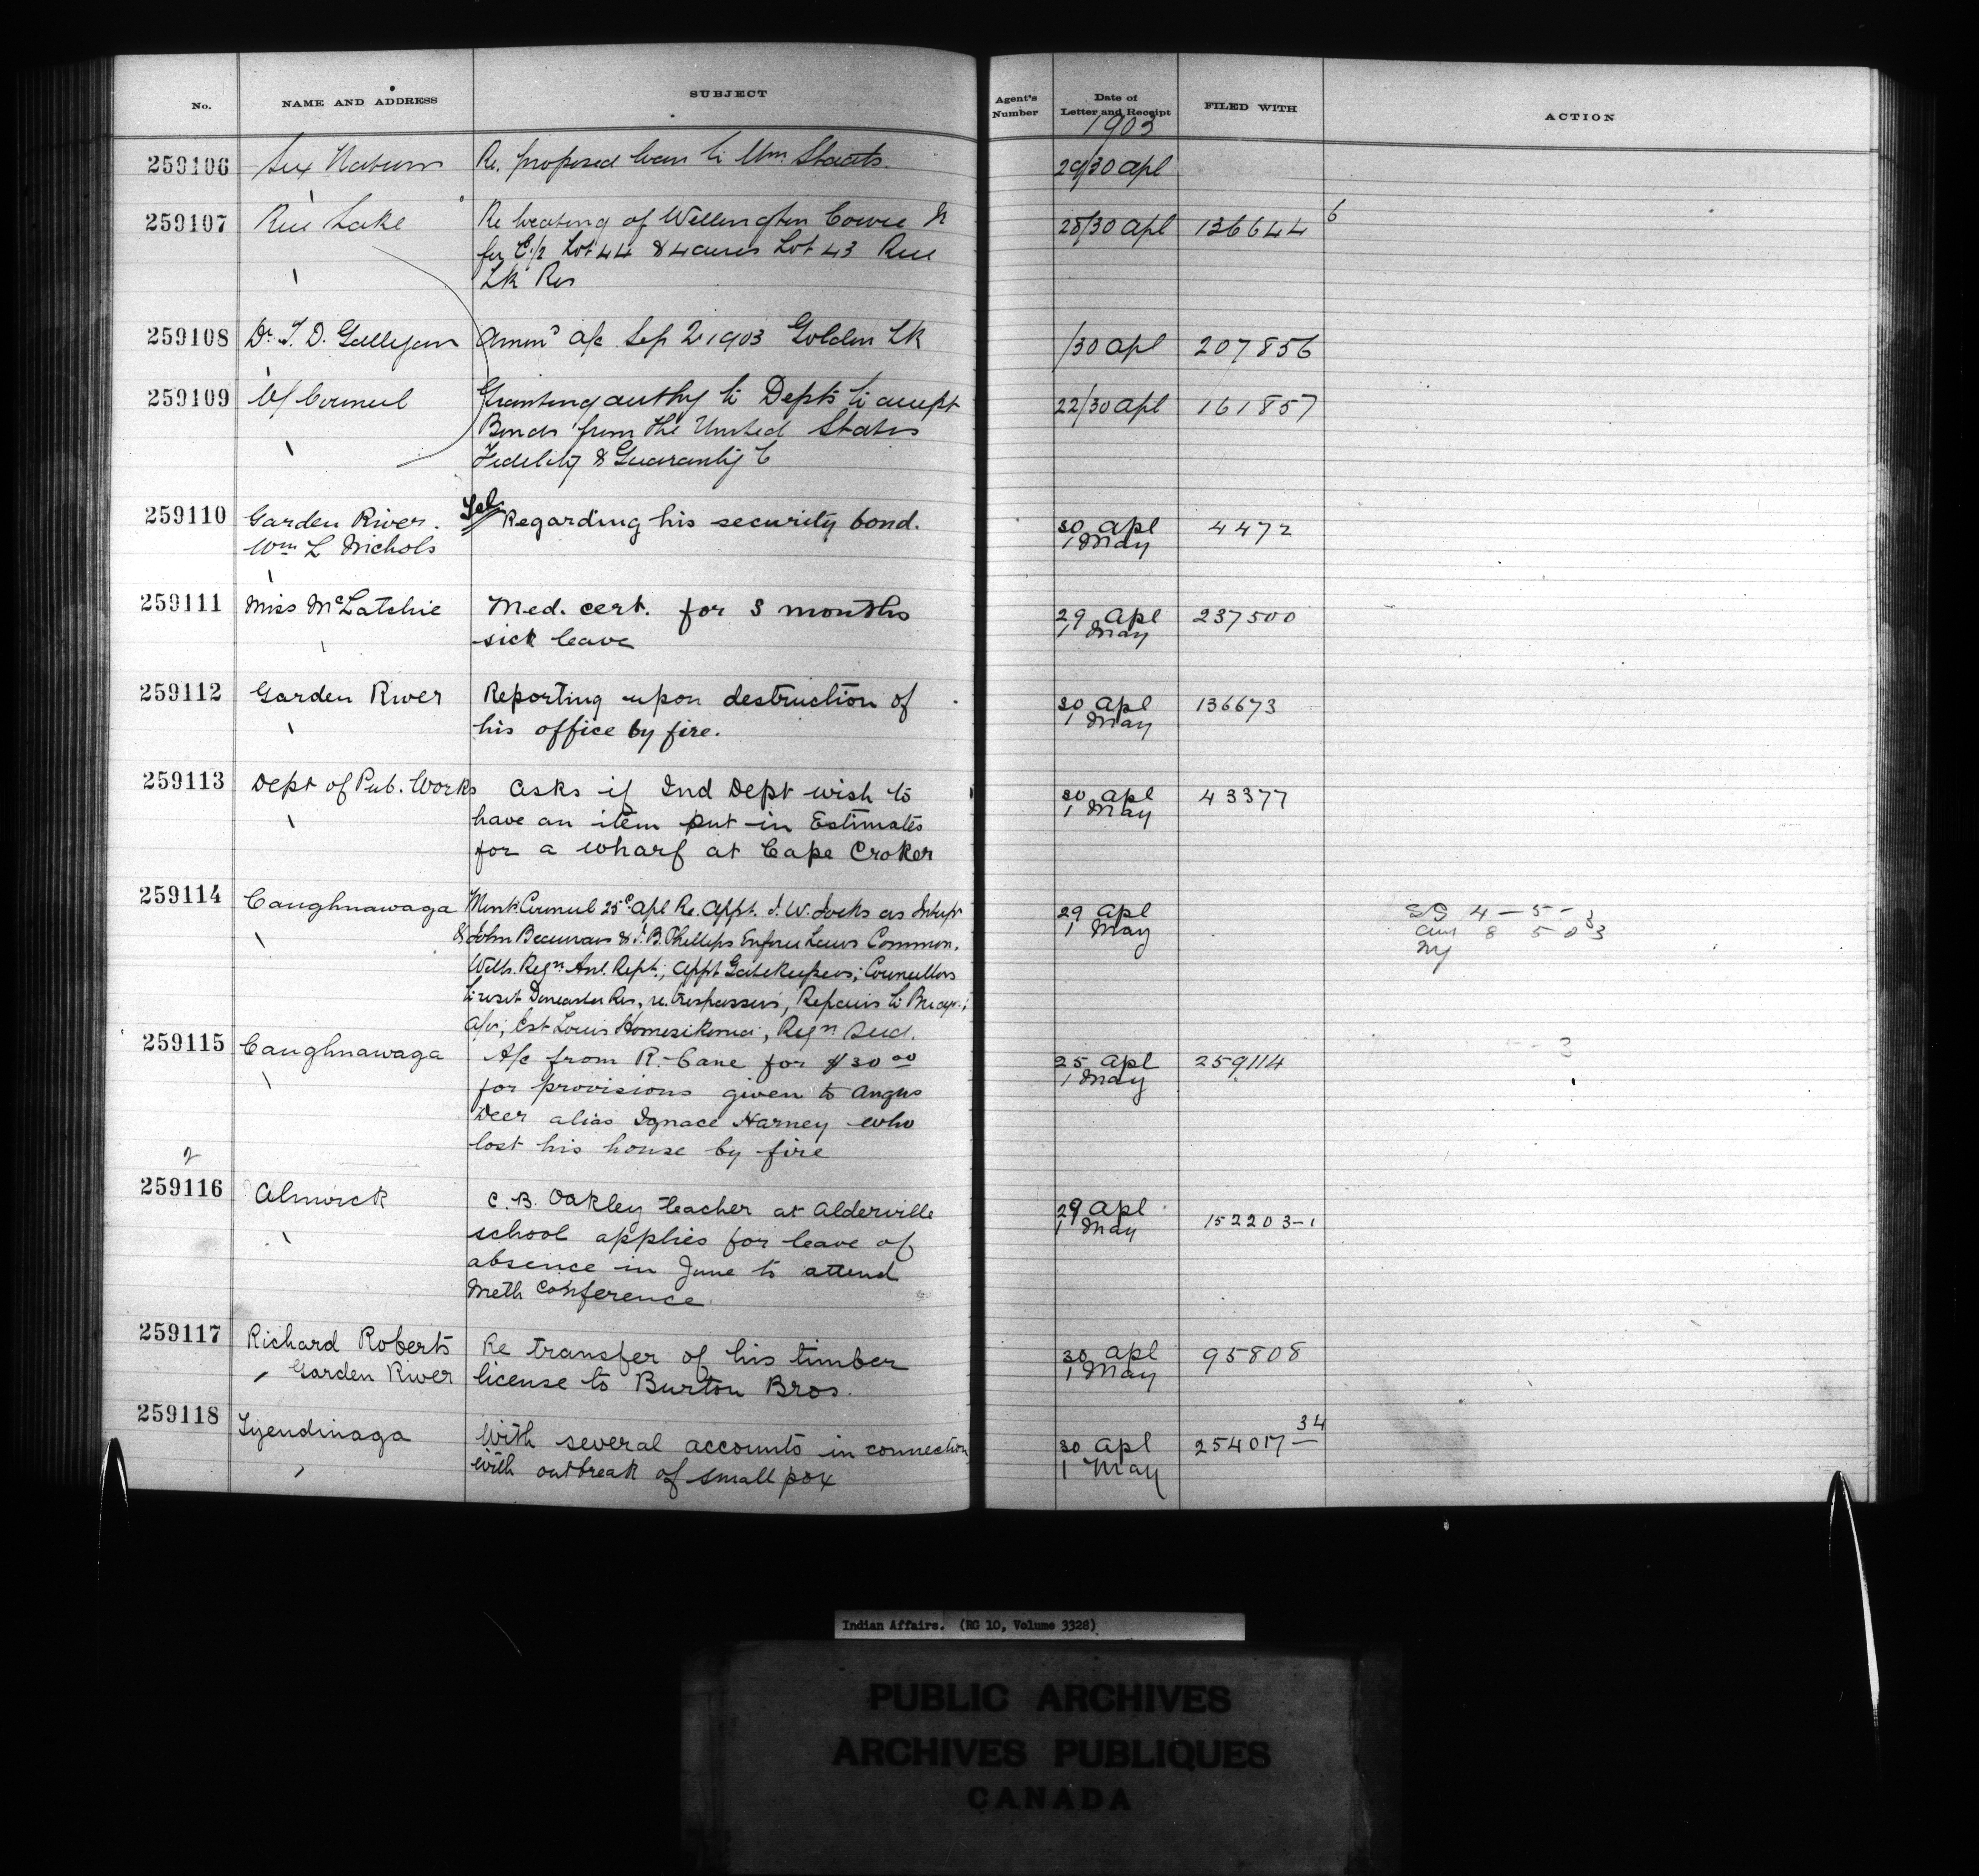 No. NAME AND ADDRESS SUBJECT Agent's Number Date of Letter and Receipt FILED WITH ACTION
1903
259106 Six Nations Re. proposed loan to Wm. Staats. 29/30 Apl
259107 Rice Lake Re locating of Wellington Cowie 28/30 Apl 136644 6
for E 1/2 Lot 44 & 4 acres Lot 43 Rice
Lk Res
259108 Dr. T. D. Galligan a/c Sep 1903 Golden Lk /30 Apl 207856
259109 Of Council Granting authy to Dept to accept 22/30 Apl 161857
Bonds from the United States
Fidelity & Guaranty C
259110 Garden River. Tel Regarding his security bond. 30 Apl 4472
Wm L Nichols 1 May
259111 Miss McLatchie Med. cert. for 3 months 29 Apl 237500
sick leave 1 May
259112 Garden River Reporting upon destruction of 30 Apl 136673
his office by fire. 1 May
259113 Dept of Pub. Works asks if Ind Dept wish to 30 Apl 43377
have an item put in Estimates 1 May
for a wharf at Cape Croker
259114 Caughnawaga Council 25 Apl Re. Appt. J. W. Jocks as 29 Apl 4-5-3
& John & J. B. Phillips 1 May 8 5 03
Appt Gatekeepers; Councillors
to visit Doncaster Res, re. trespassers, Repairs to
Est Louis
259115 Caughnawaga A/c from R. Cane for $30 00 25 Apl 259114
for provisions given to Angus 1 May
Deer alias Ignace Harney who
lost his house by fire
259116 Alnwick C. B. Oakley teacher at Alderville 29 Apl 152203-1
school applies for leave of 1 May
absence in June to attend
Meth Conference
259117 Richard Roberts Re transfer of his timber 30 Apl 95808
Garden River license to Burton Bros. 1 May
259118 Tyendinaga With several accounts in connection 30 Apl 254017-34
with outbreak of small pox 1 May
Indian Affairs. (RG 10, Volume 3328)
PUBLIC ARCHIVES
ARCHIVES PUBLIQUES
CANADA